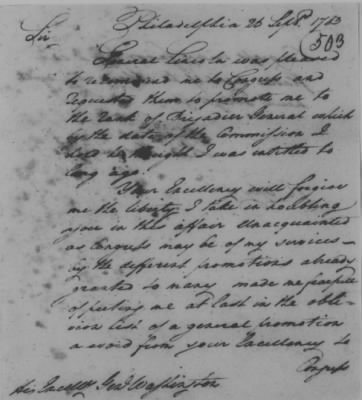 Philadelphia 26 Sepr. 1783
(503)
Sir
General Lincoln was pleased
to recommend me to Congress and
requested them to promote me to
the Rank of Brigadier General which
by the date of the Commission I
hold he thought I was entitled to
long ago.
Your Excellency will forgive
me the liberty I take in troubling
you in this affair Unacquainted
as Congress may be of my services —
by the different promotions already
granted so many made me fearfull
of putting me at last in the obli-
vion list of a general promotion
a word from your Excellency to
Congress
His Excelly. Genl. Washington